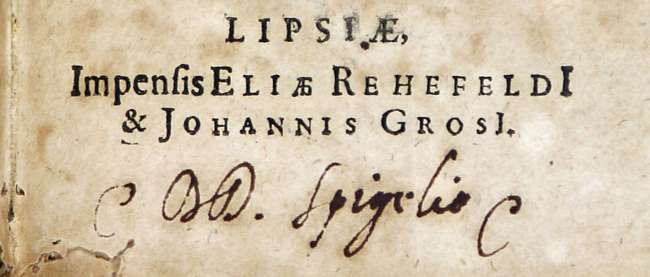 LIPSIÆ,
Impensis ELIÆ REHEFELDI
& JOHANNIS GROSI.
( DD. Spigelio )